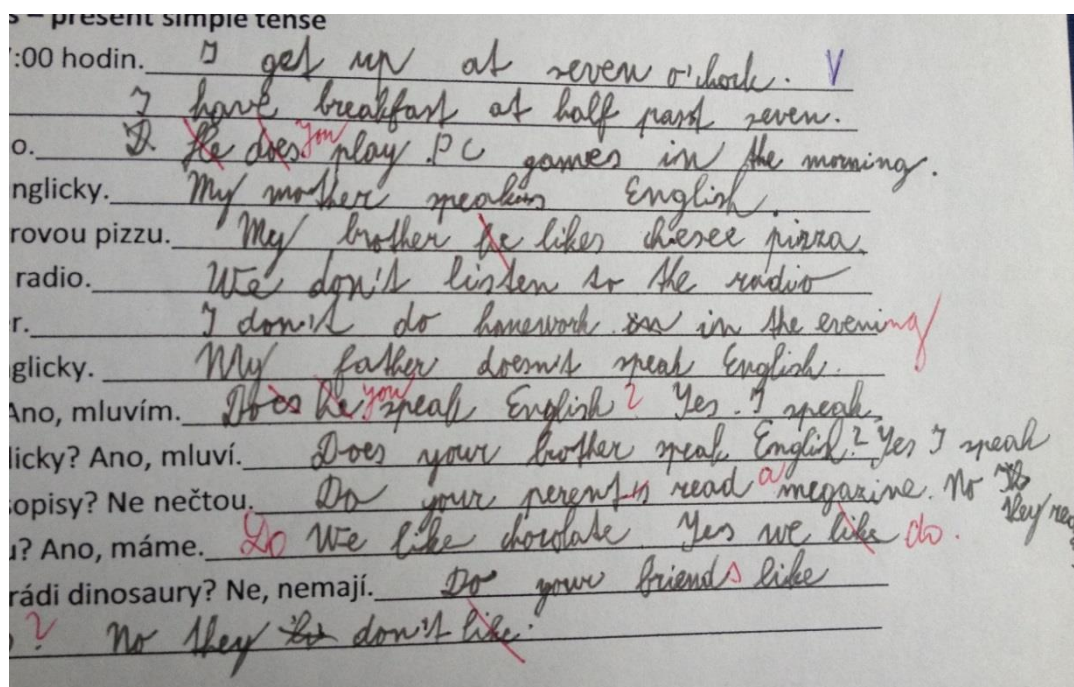 s – present simple tense
:00 hodin. I get up at seven o'clock. V
I have breakfast at half past seven.
o. He does you play PC games in the morning.
nglicky. My mother speaks English.
rovou pizzu. My brother he likes cheese pizza.
radio. We don't listen to the radio
r. I don't do homework in the evening
glicky. My father doesn't speak English.
Ano, mluvím. Does he you speak English? Yes. I speak.
licky? Ano, mluví. Does your brother speak English? Yes I speak
opisy? Ne nečtou. Do your perents read a megazine. No they
u? Ano, máme. Do We like chocolate Yes we like do.
rádi dinosaury? Ne, nemají. Do your friends like
? No they don't like.